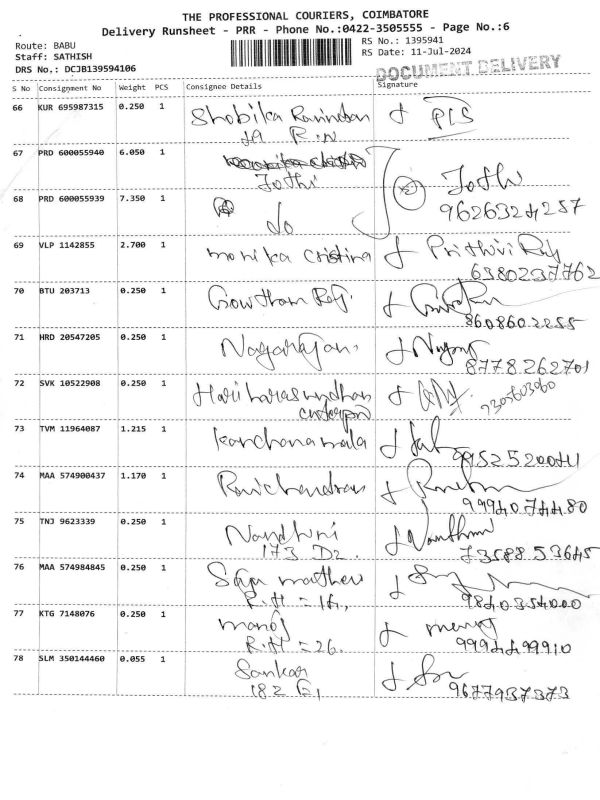 THE PROFESSIONAL COURIERS, COIMBATORE
Delivery Runsheet - PRR - Phone No.:0422-3505555 - Page No.:6
Route: BABU
RS No.: 1395941
Staff: SATHISH
RS Date: 11-Jul-2024
DRS No.: DCJB139594106
DOCUMENT DELIVERY
S No Consignment No Weight PCS Consignee Details Signature
66 KUR 695987315 0.250 1 Shobika
67 PRD 600055940 6.050 1 Jothi
68 PRD 600055939 7.350 1 do Jothi
9626324257
69 VLP 1142855 2.700 1 monika cristina Prithivi Raj
6380237762
70 BTU 203713 0.250 1 Gowtham Raj.
8608602255
71 HRD 20547205 0.250 1 Nagarajan.
8778262701
72 SVK 10522908 0.250 1
73 TVM 11964087 1.215 1 Kanchana mala
9952520041
74 MAA 574900437 1.170 1 Ravichandran
9994074480
75 TNJ 9623339 0.250 1 Nandhni Nandhini
173 D2. 7358853645
76 MAA 574984845 0.250 1 Saju mathew
R.H = 16, 9840354000
77 KTG 7148076 0.250 1 manoj manoj
R.H = 26. 9994499910
78 SLM 350144460 0.055 1 Sankar
182 E1 9677937373